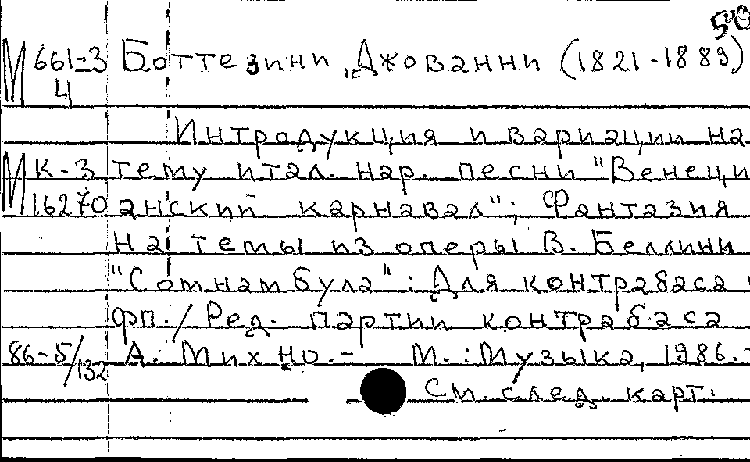 50
М 661-3 Боттезини, Джованни (1821-1889)
4
Интродукция и вариации на
М К-3 тему итал. нар. песни "Венеци
16270 анский карнавал"; Фантазия
на темы из оперы В. Беллини
"Сомнамбула": Для контрабаса и
фп./ Ред. партии контрабаса
86-5/132 А. Михно.- М.: Музыка, 1986.-
См. след. карт.